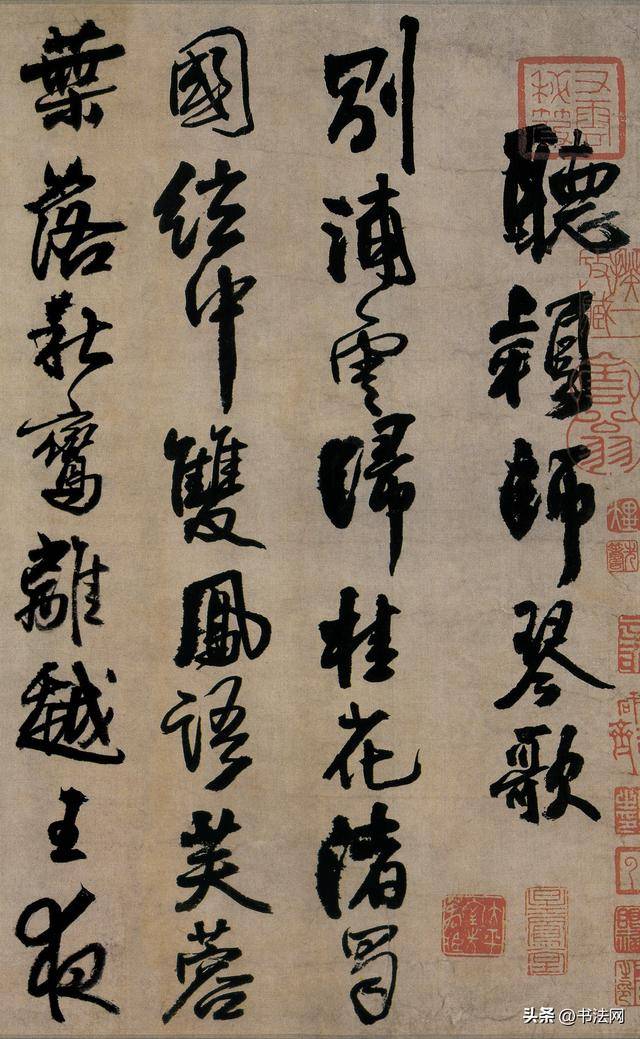 聽穎師琴歌
別浦雲歸桂花渚蜀
國絃中雙鳳語芙蓉
葉落秋鸞離越王夜
头条 @书法网